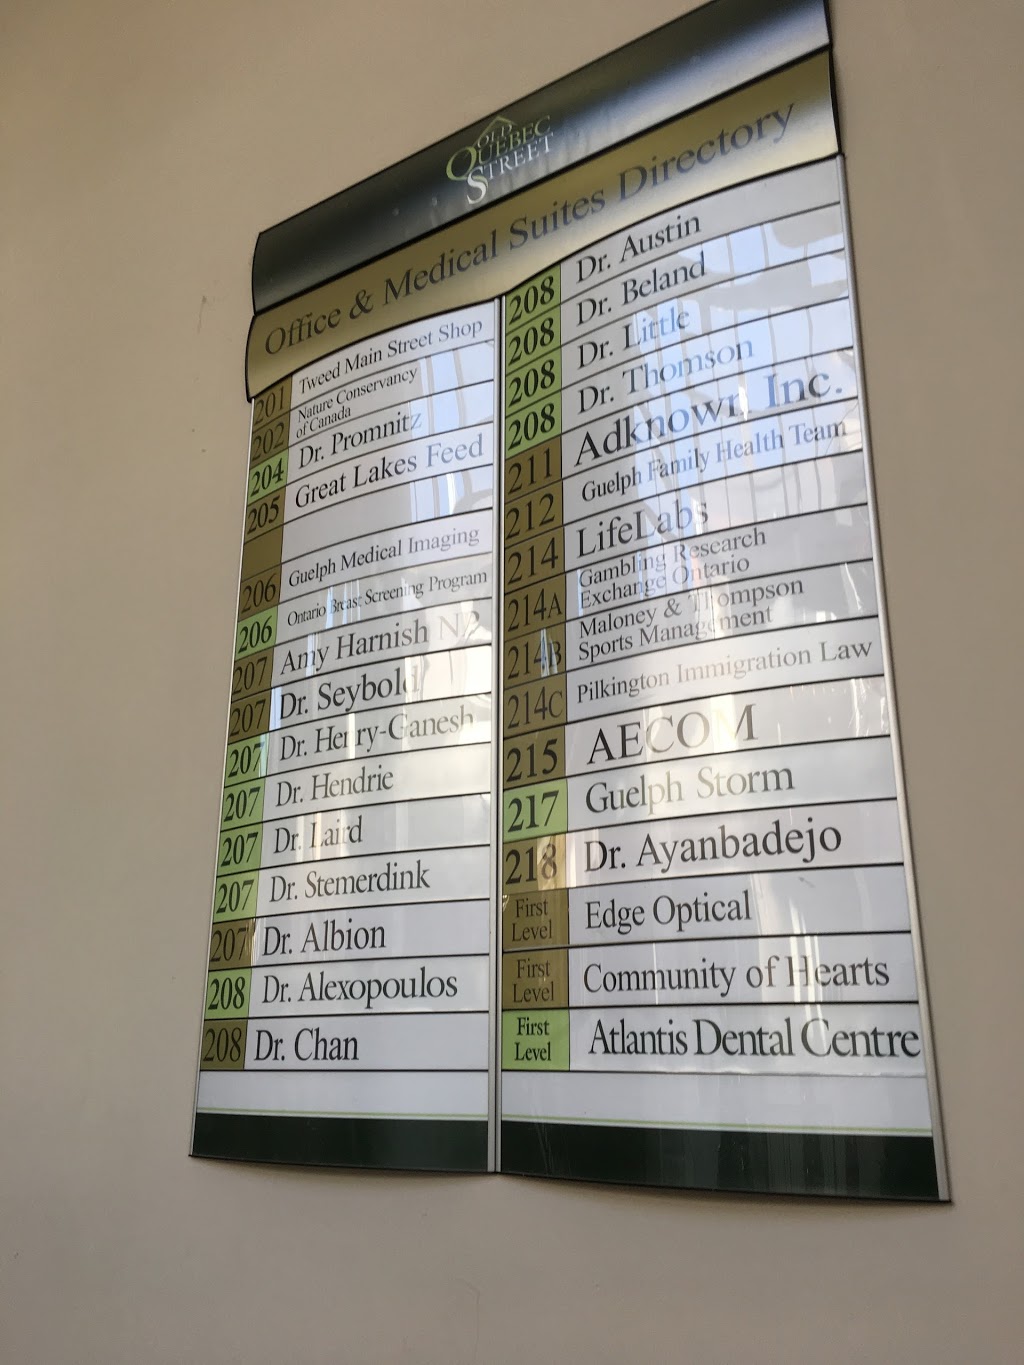 OLD
QUEBEC
STREET
Office & Medical Suites Directory
201 Tweed Main Street Shop
202 Nature Conservancy
of Canada
204 Dr. Promnitz
205 Great Lakes Feed
206 Guelph Medical Imaging
206 Ontario Breast Screening Program
207 Amy Harnish NP
207 Dr. Seybold
207 Dr. Henry-Ganesh
207 Dr. Hendrie
207 Dr. Laird
207 Dr. Stemerdink
207 Dr. Albion
208 Dr. Alexopoulos
208 Dr. Chan
208 Dr. Austin
208 Dr. Beland
208 Dr. Little
208 Dr. Thomson
211 Adknown Inc.
212 Guelph Family Health Team
214 LifeLabs
214A Gambling Research
Exchange Ontario
214B Maloney & Thompson
Sports Management
214C Pilkington Immigration Law
215 AECOM
217 Guelph Storm
218 Dr. Ayanbadejo
First
Level Edge Optical
First
Level Community of Hearts
First
Level Atlantis Dental Centre